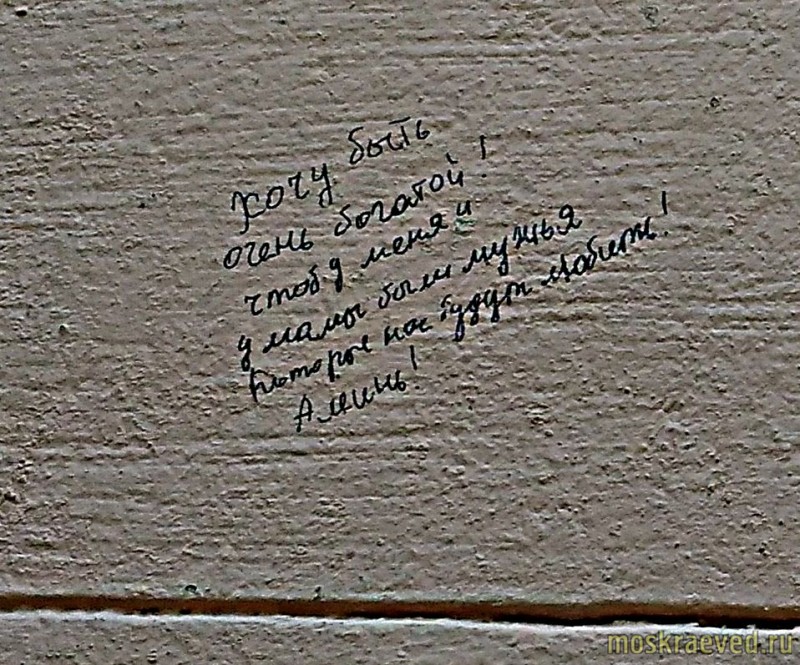 Хочу быть
очень богатой!
чтоб у меня и
у мамы были мужья
которые нас будут любить!
Аминь!
moskraeved.ru